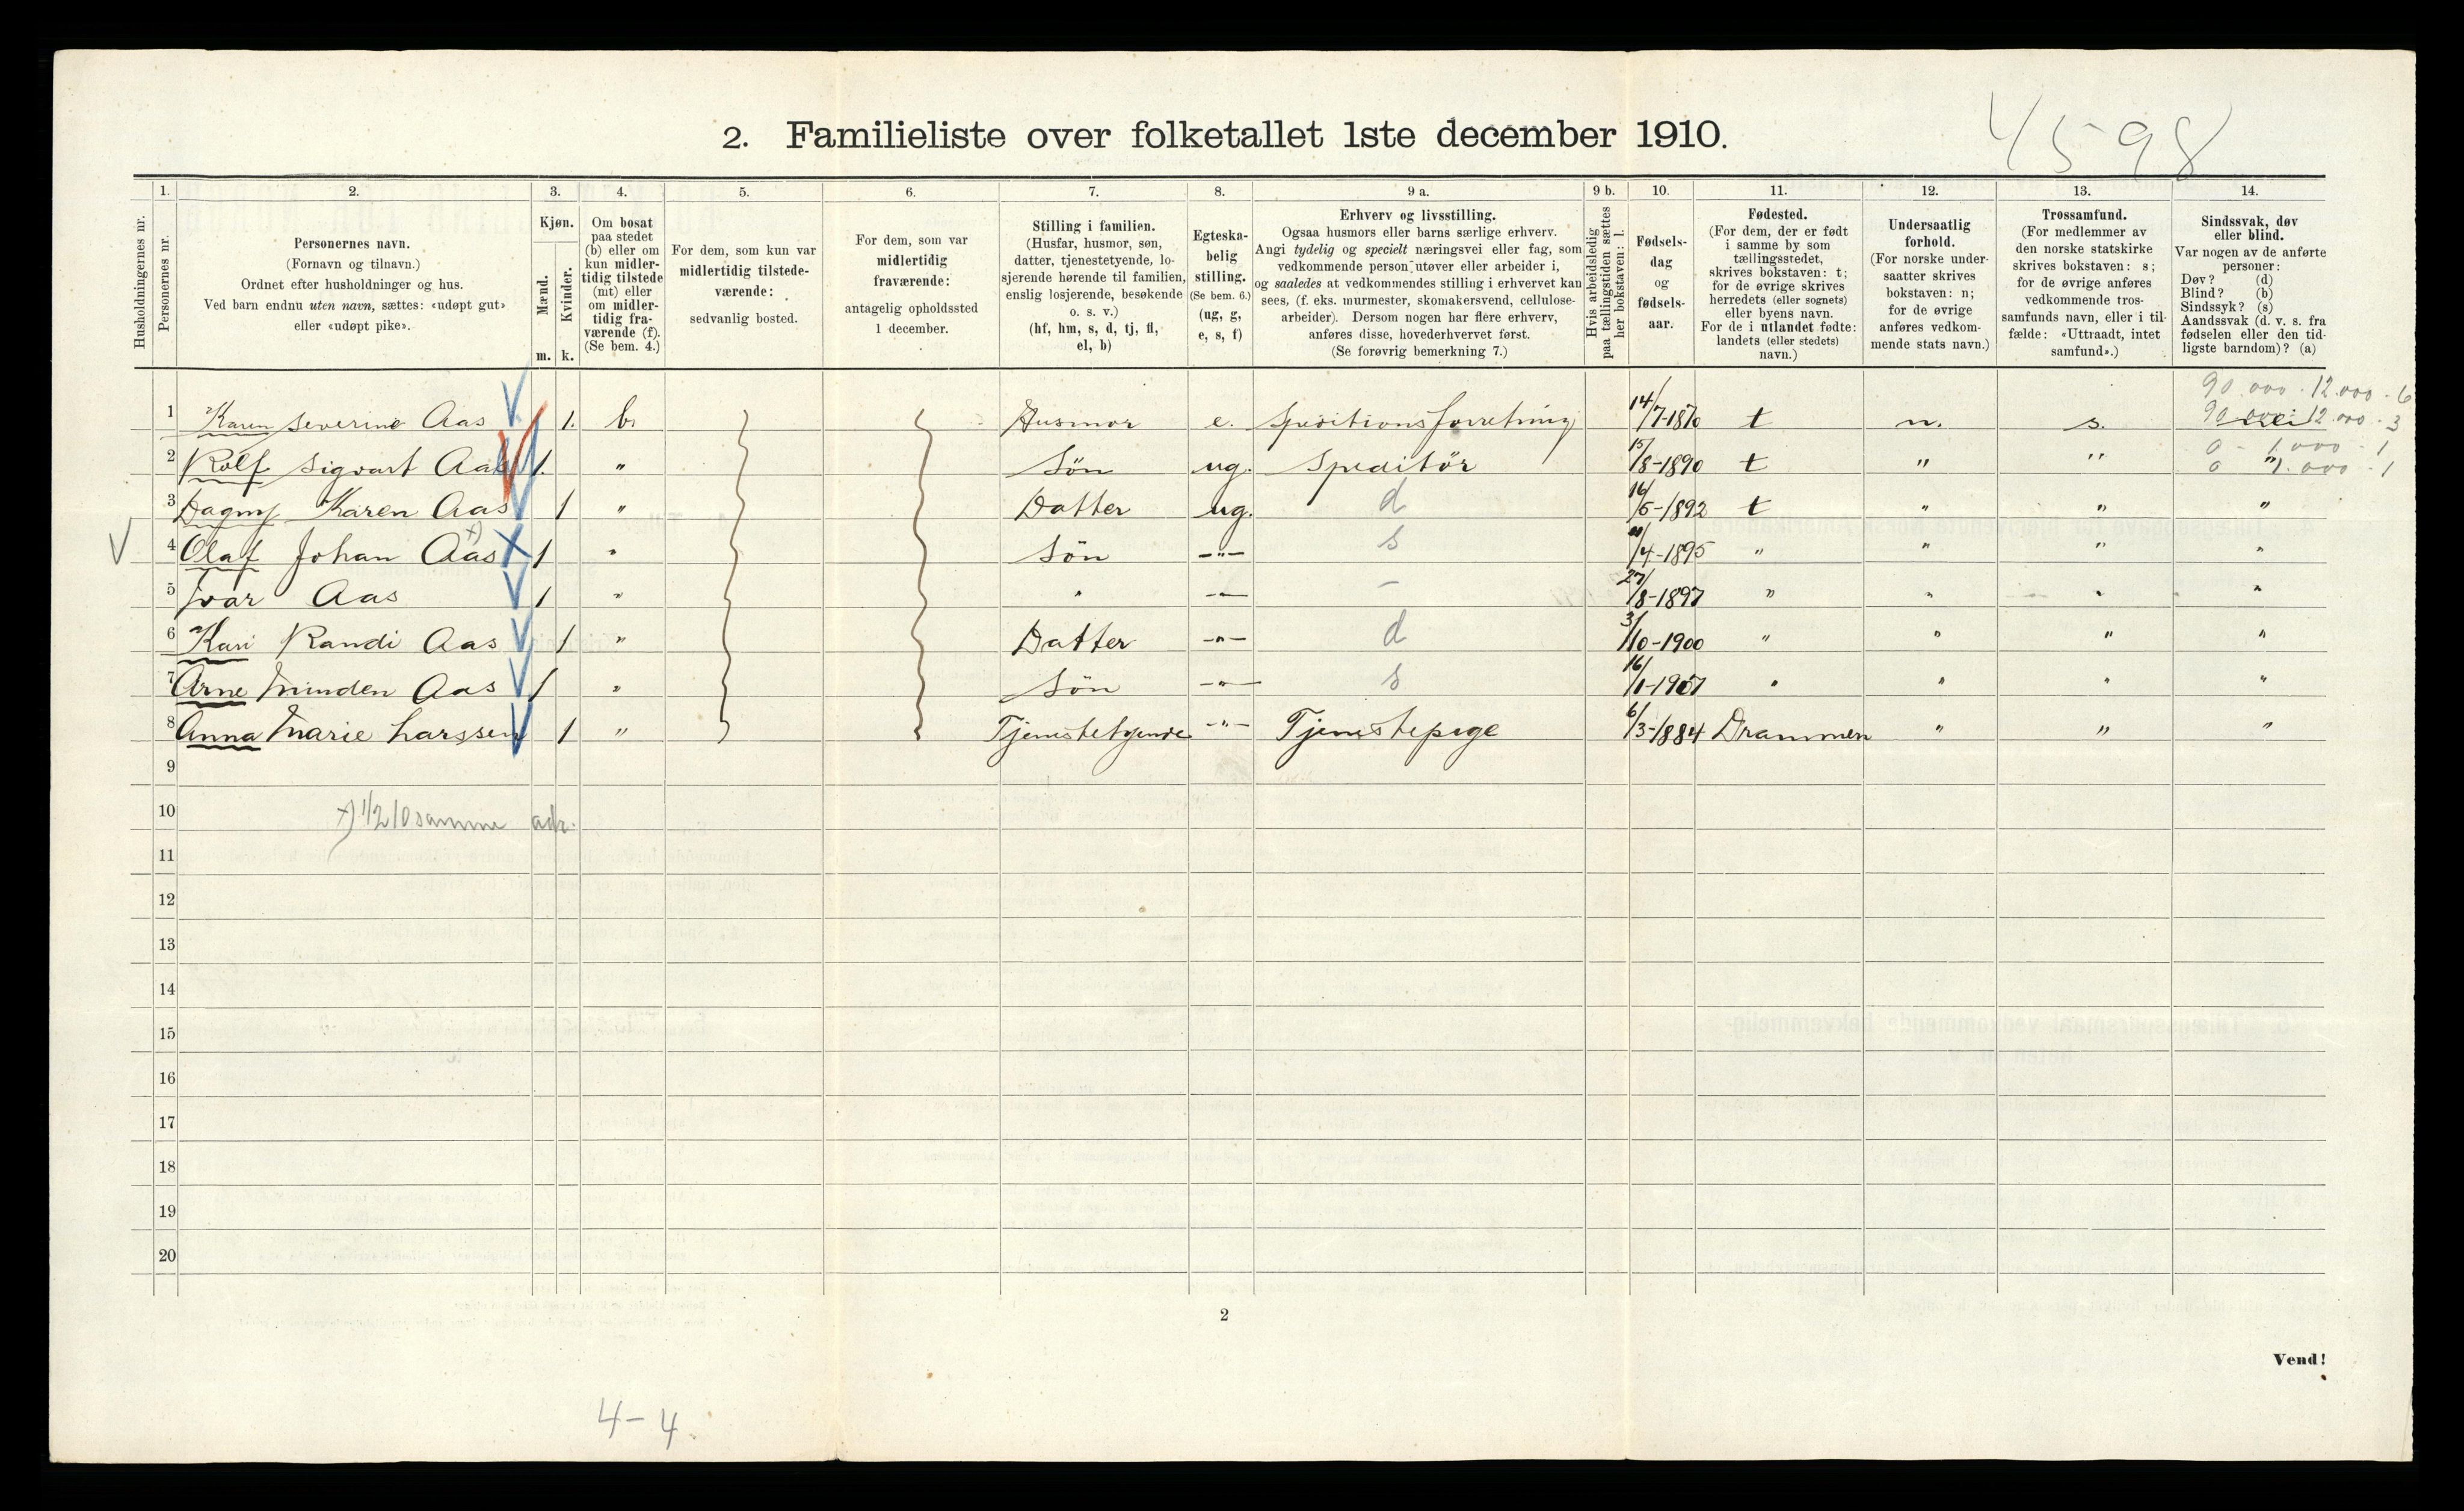 4598
2. Familieliste over folketallet 1ste december 1910.
1. 2. 3. 4. 5. 6. 7. 8. 9 a. 9 b. 10. 11. 12. 13. 14.
Husholdningernes nr.
Personernes nr.
Personernes navn.
(Fornavn og tilnavn.)
Ordnet efter husholdninger og hus.
Ved barn endnu uten navn, sættes: «udøpt gut»
eller «udøpt pike».
Kjøn.
Mænd.
Kvinder.
m. k.
Om bosat
paa stedet
(b) eller om
kun midler-
tidig tilstede
(mt) eller
om midler-
tidig fra-
værende (f).
(Se bem. 4.)
For dem, som kun var
midlertidig tilstede-
værende:
sedvanlig bosted.
For dem, som var
midlertidig
fraværende:
antagelig opholdssted
1 december.
Stilling i familien.
(Husfar, husmor, søn,
datter, tjenestetyende, lo-
sjerende hørende til familien,
enslig losjerende, besøkende
o. s. v.)
(hf, hm, s, d, tj, fl,
el, b)
Egteska-
belig
stilling.
(Se bem. 6.)
(ug, g,
e, s, f)
Erhverv og livsstilling.
Ogsaa husmors eller barns særlige erhverv.
Angi tydelig og specielt næringsvei eller fag, som
vedkommende person utøver eller arbeider i,
og saaledes at vedkommendes stilling i erhvervet kan
sees, (f. eks. murmester, skomakersvend, cellulose-
arbeider). Dersom nogen har flere erhverv,
anføres disse, hovederhvervet først.
(Se forøvrig bemerkning 7.)
Hvis arbeidsledig
paa tællingstiden sættes
her bokstaven: l.
Fødsels-
dag
og
fødsels-
aar.
Fødested.
(For dem, der er født
i samme by som
tællingsstedet,
skrives bokstaven: t;
for de øvrige skrives
herredets (eller sognets)
eller byens navn.
For de i utlandet fødte:
landets (eller stedets)
navn.)
Undersaatlig
forhold.
(For norske under-
saatter skrives
bokstaven: n;
for de øvrige
anføres vedkom-
mende stats navn.)
Trossamfund.
(For medlemmer av
den norske statskirke
skrives bokstaven: s;
for de øvrige anføres
vedkommende tros-
samfunds navn, eller i til-
fælde: «Uttraadt, intet
samfund».)
Sindssvak, døv
eller blind.
Var nogen av de anførte
personer:
Døv? (d)
Blind? (b)
Sindssyk? (s)
Aandssvak (d. v. s. fra
fødselen eller den tid-
ligste barndom)? (a)
90.000 - 12.000 - 6
1 Karen Severine Aas 1. b. Husmor e. Speditionsforretning 14/7-1870 t n. s. 12.000 - 3
0 - 1.000 - 1
2 Rolf Sigvart Aas 1. " Søn ug. Speditör 15/8-1890 t " " 0 1.000 - 1
3 Dagny Karen Aas 1 " Datter ug. d 16/5-1892 t " " "
4 Olaf Johan Aas x) 1 " Søn -"- s /4-1895 " " " "
5 Ivar Aas 1 " " -"- - 27/8-1897 " " " "
6 Kari Randi Aas 1 " Datter -"- d 3/10-1900 " " " "
7 Arne Minden Aas 1 " Søn -"- s 16/1-1907 " " " "
8 Anna Marie Larssen 1 " Tjenestetyende -"- Tjenestepige 6/3-1884 Drammen " " "
9
10 x) 1/2 10 samme adr.
11
12
13
14
15
16
17
18
19
20
2
Vend!
4-4.